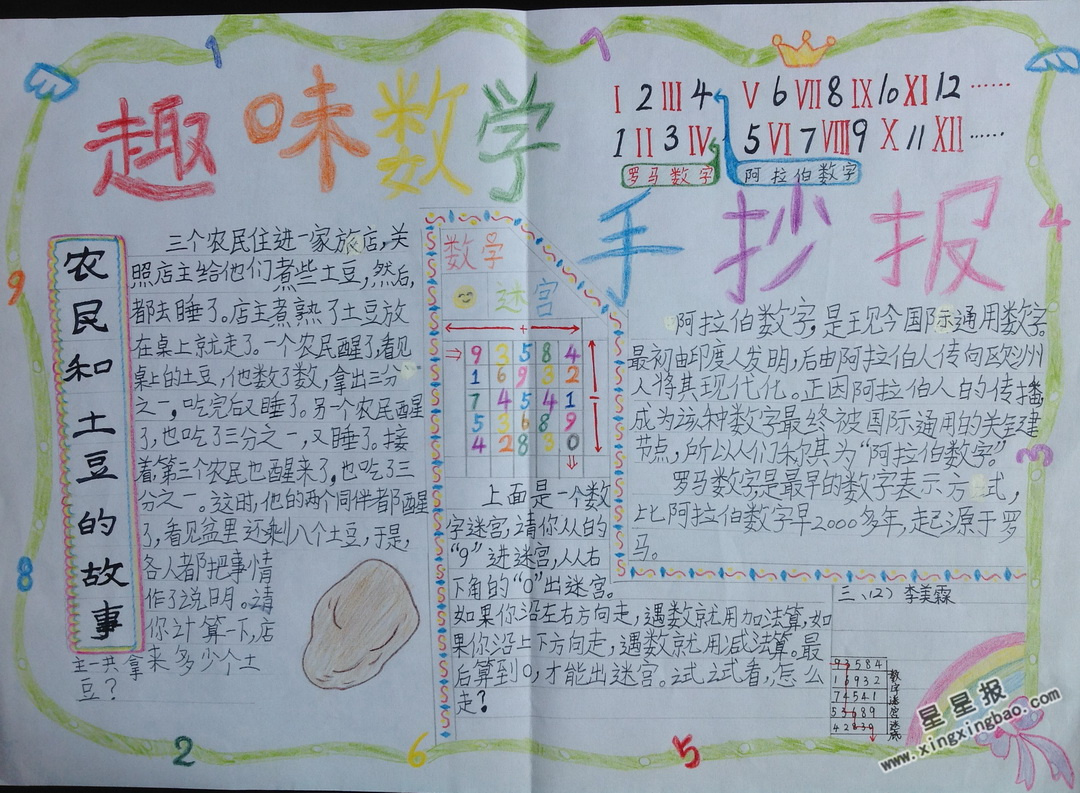 趣味数学
手抄报
I 2 III 4 V 6 VII 8 IX 10 XI 12 ……
1 II 3 IV 5 VI 7 VIII 9 X 11 XII ……
罗马数字 阿拉伯数字
农民和土豆的故事
三个农民住进一家旅店,关
照店主给他们煮些土豆,然后,
都去睡了。店主煮熟了土豆放
在桌上就走了。一个农民醒了,看见
桌上的土豆,他数了数,拿出三分
之一,吃完后又睡了。另一个农民醒
了,也吃了三分之一,又睡了。接
着,第三个农民也醒来了,也吃了三
分之一。这时,他的两个同伴都醒
了,看见盆里还剩八个土豆,于是,
各人都把事情
作了说明。请
你计算一下,店
主一共拿来多少个土
豆?
数学
迷宫
+
9 3 5 8 4
1 6 9 3 2
7 4 5 4 1
5 3 6 8 9
4 2 8 3 0
上面是一个数
字迷宫,请你从的
“9”进迷宫,从右
下角的“0”出迷宫。
如果你沿左右方向走,遇数就用加法算,如
果你沿上下方向走,遇数就用减法算。最
后算到0,才能出迷宫。试试看,怎么
走?
阿拉伯数字,是现今国际通用数字。
最初由印度人发明,后由阿拉伯人传向欧洲
人将其现代化。正因阿拉伯人的传播,
成为该种数字最终被国际通用的关键
节点,所以人们称其为“阿拉伯数字。”
罗马数字,是最早的数字表示方式,
比阿拉伯数字早2000多年,起源于罗
马。
三、(2) 李美霖
9 3 5 8 4
1 6 9 3 2
7 4 5 4 1
5 3 6 8 9
4 2 8 3 0
数字迷宫
1
7
4
3
9
8
2
6
5
星星报
www.xingxingbao.com